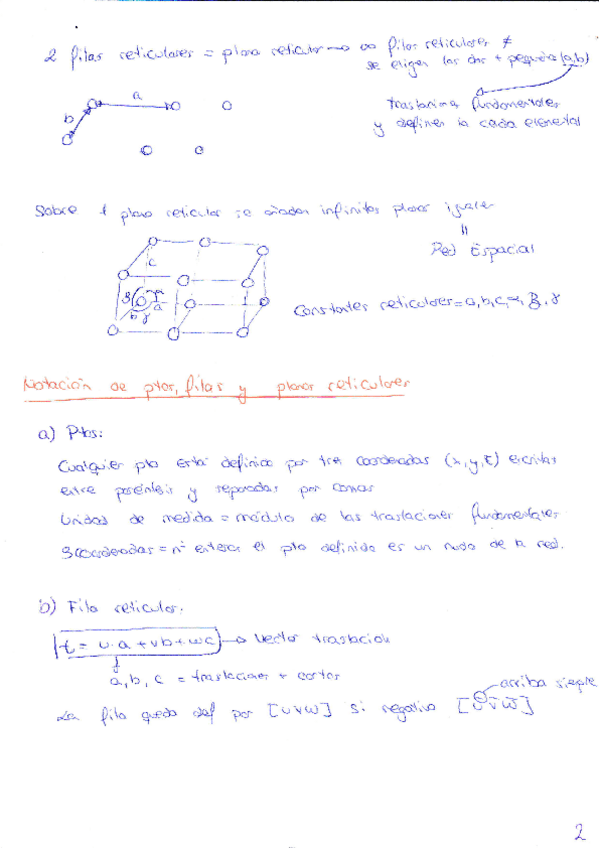 2 filas reticulares = plano reticular → ∞ filas reticulares ≠
se eligen las dos + pequeñas (a,b)
a
b
traslaciones fundamentales
y definen la celda elemental
Sobre 1 plano reticular se añaden infinitos planos iguales
=
Red Espacial
c
β α a
b γ
Constantes reticulares = a, b, c, α, β, γ
Notación de ptos, filas y planos reticulares
a) Ptos:
Cualquier pto está definido por tres coordenadas (x, y, z) escritas
entre paréntesis y separadas por comas
Unidad de medida = módulo de las traslaciones fundamentales
3 coordenadas = nº enteros el pto definido es un nudo de la red.
b) Fila reticular.
t = u·a + vb + wc → Vector traslación
a, b, c = traslaciones + cortas
arriba siempre
La fila queda def por [uvw] si negativo [ūv̄w̄]
2